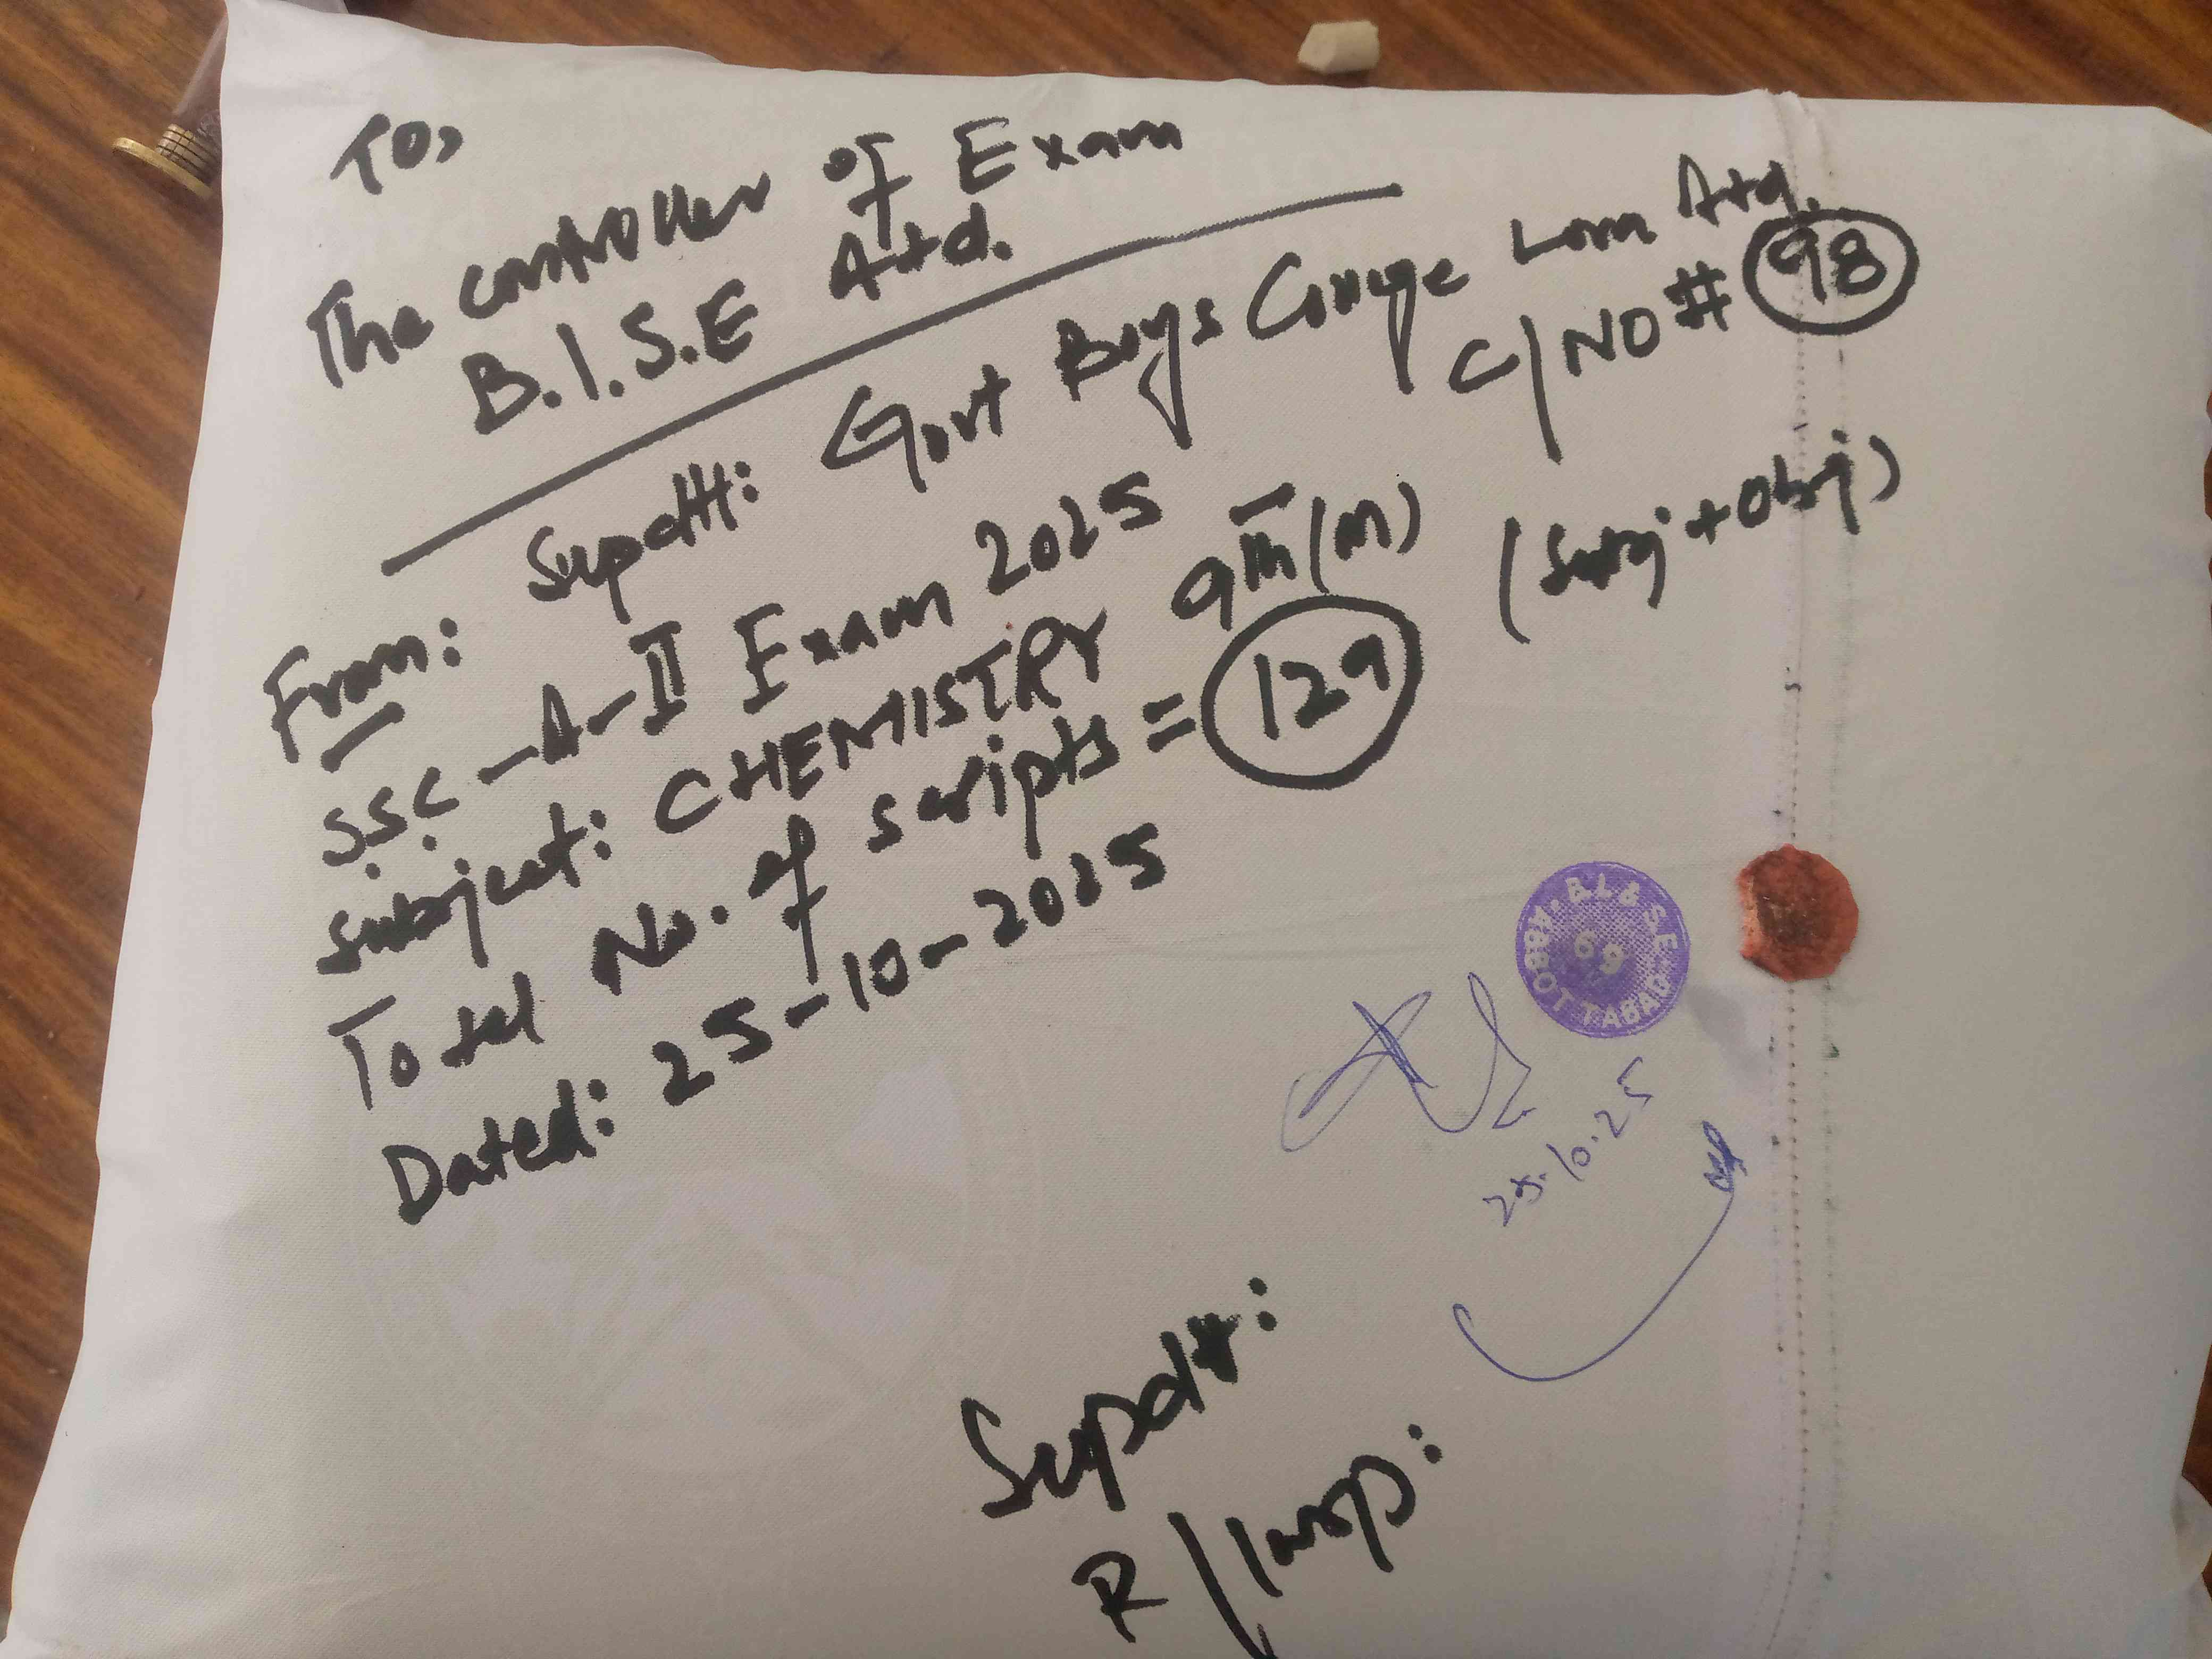 To,
The controller of Exam
B.I.S.E Atd.
From: Supdtt: Govt Boys College Lora Atd.
C/NO # 98
S.S.C-A-II Exam 2025
Subject: CHEMISTRY 9th (M) (Subj + Obj)
Total No. of scripts = 129
Dated: 25-10-2025
B.I. & S.E
69
ABBOTTABAD
25.10.25
Supdtt:
R/Insp: